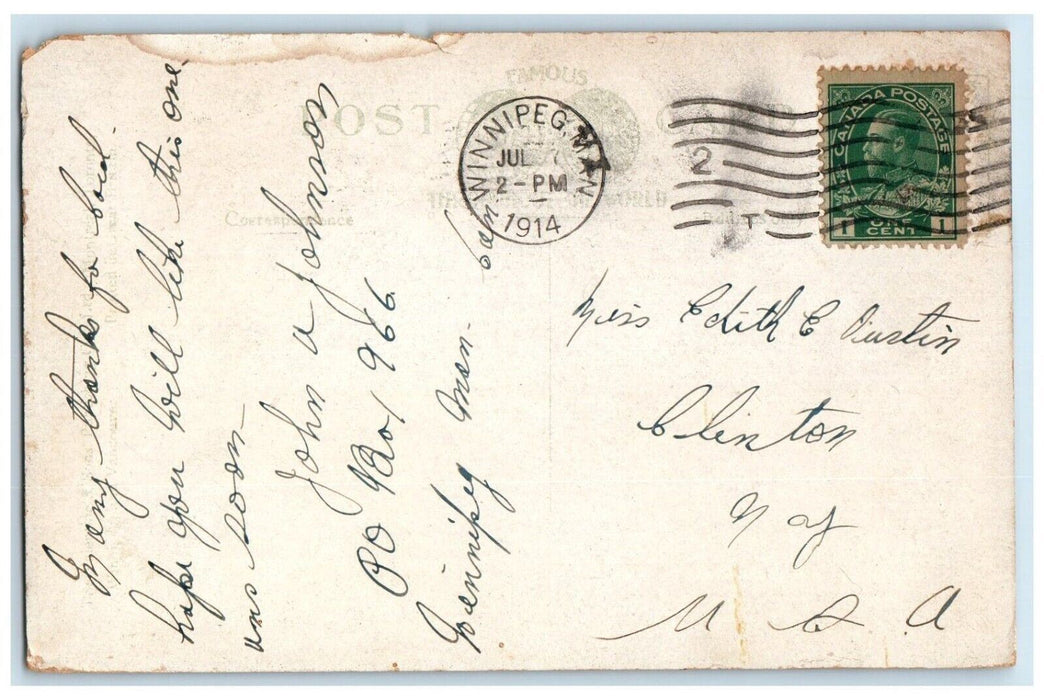 FAMOUS
POST CARD
WINNIPEG, MAN
JUL 7
2-PM
1914
2
T
CANADA POSTAGE
1 ONE CENT 1
Correspondence
Many thanks for card.
hope you will like this one.
ans soon-
John a Johnson
PO Box 966
Winnipeg Man-
Can
Miss Edith E Austin
Clinton
N Y
U S A